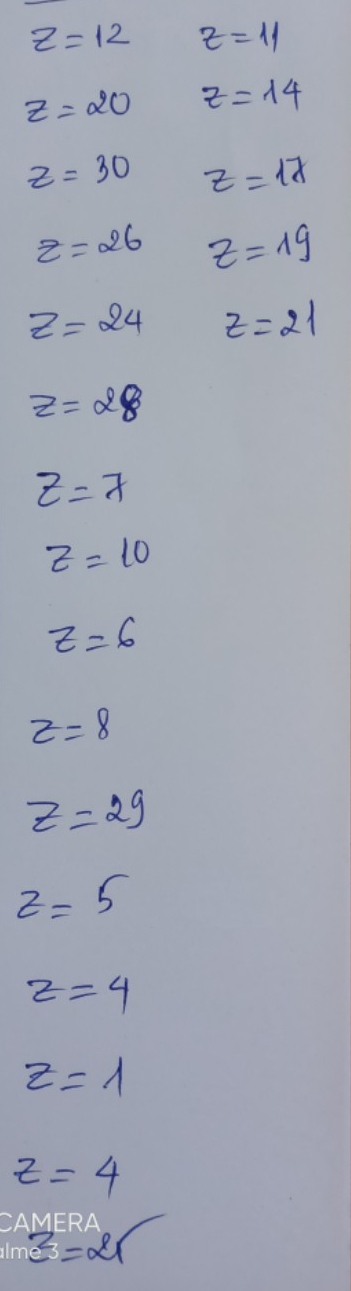 Z=12 Z=11
Z=20 Z=14
Z=30 Z=17
Z=26 Z=19
Z=24 Z=21
Z=28
Z=7
Z=10
Z=6
Z=8
Z=29
Z=5
Z=4
Z=1
Z=4
CAMERA
alme 3
Z=25